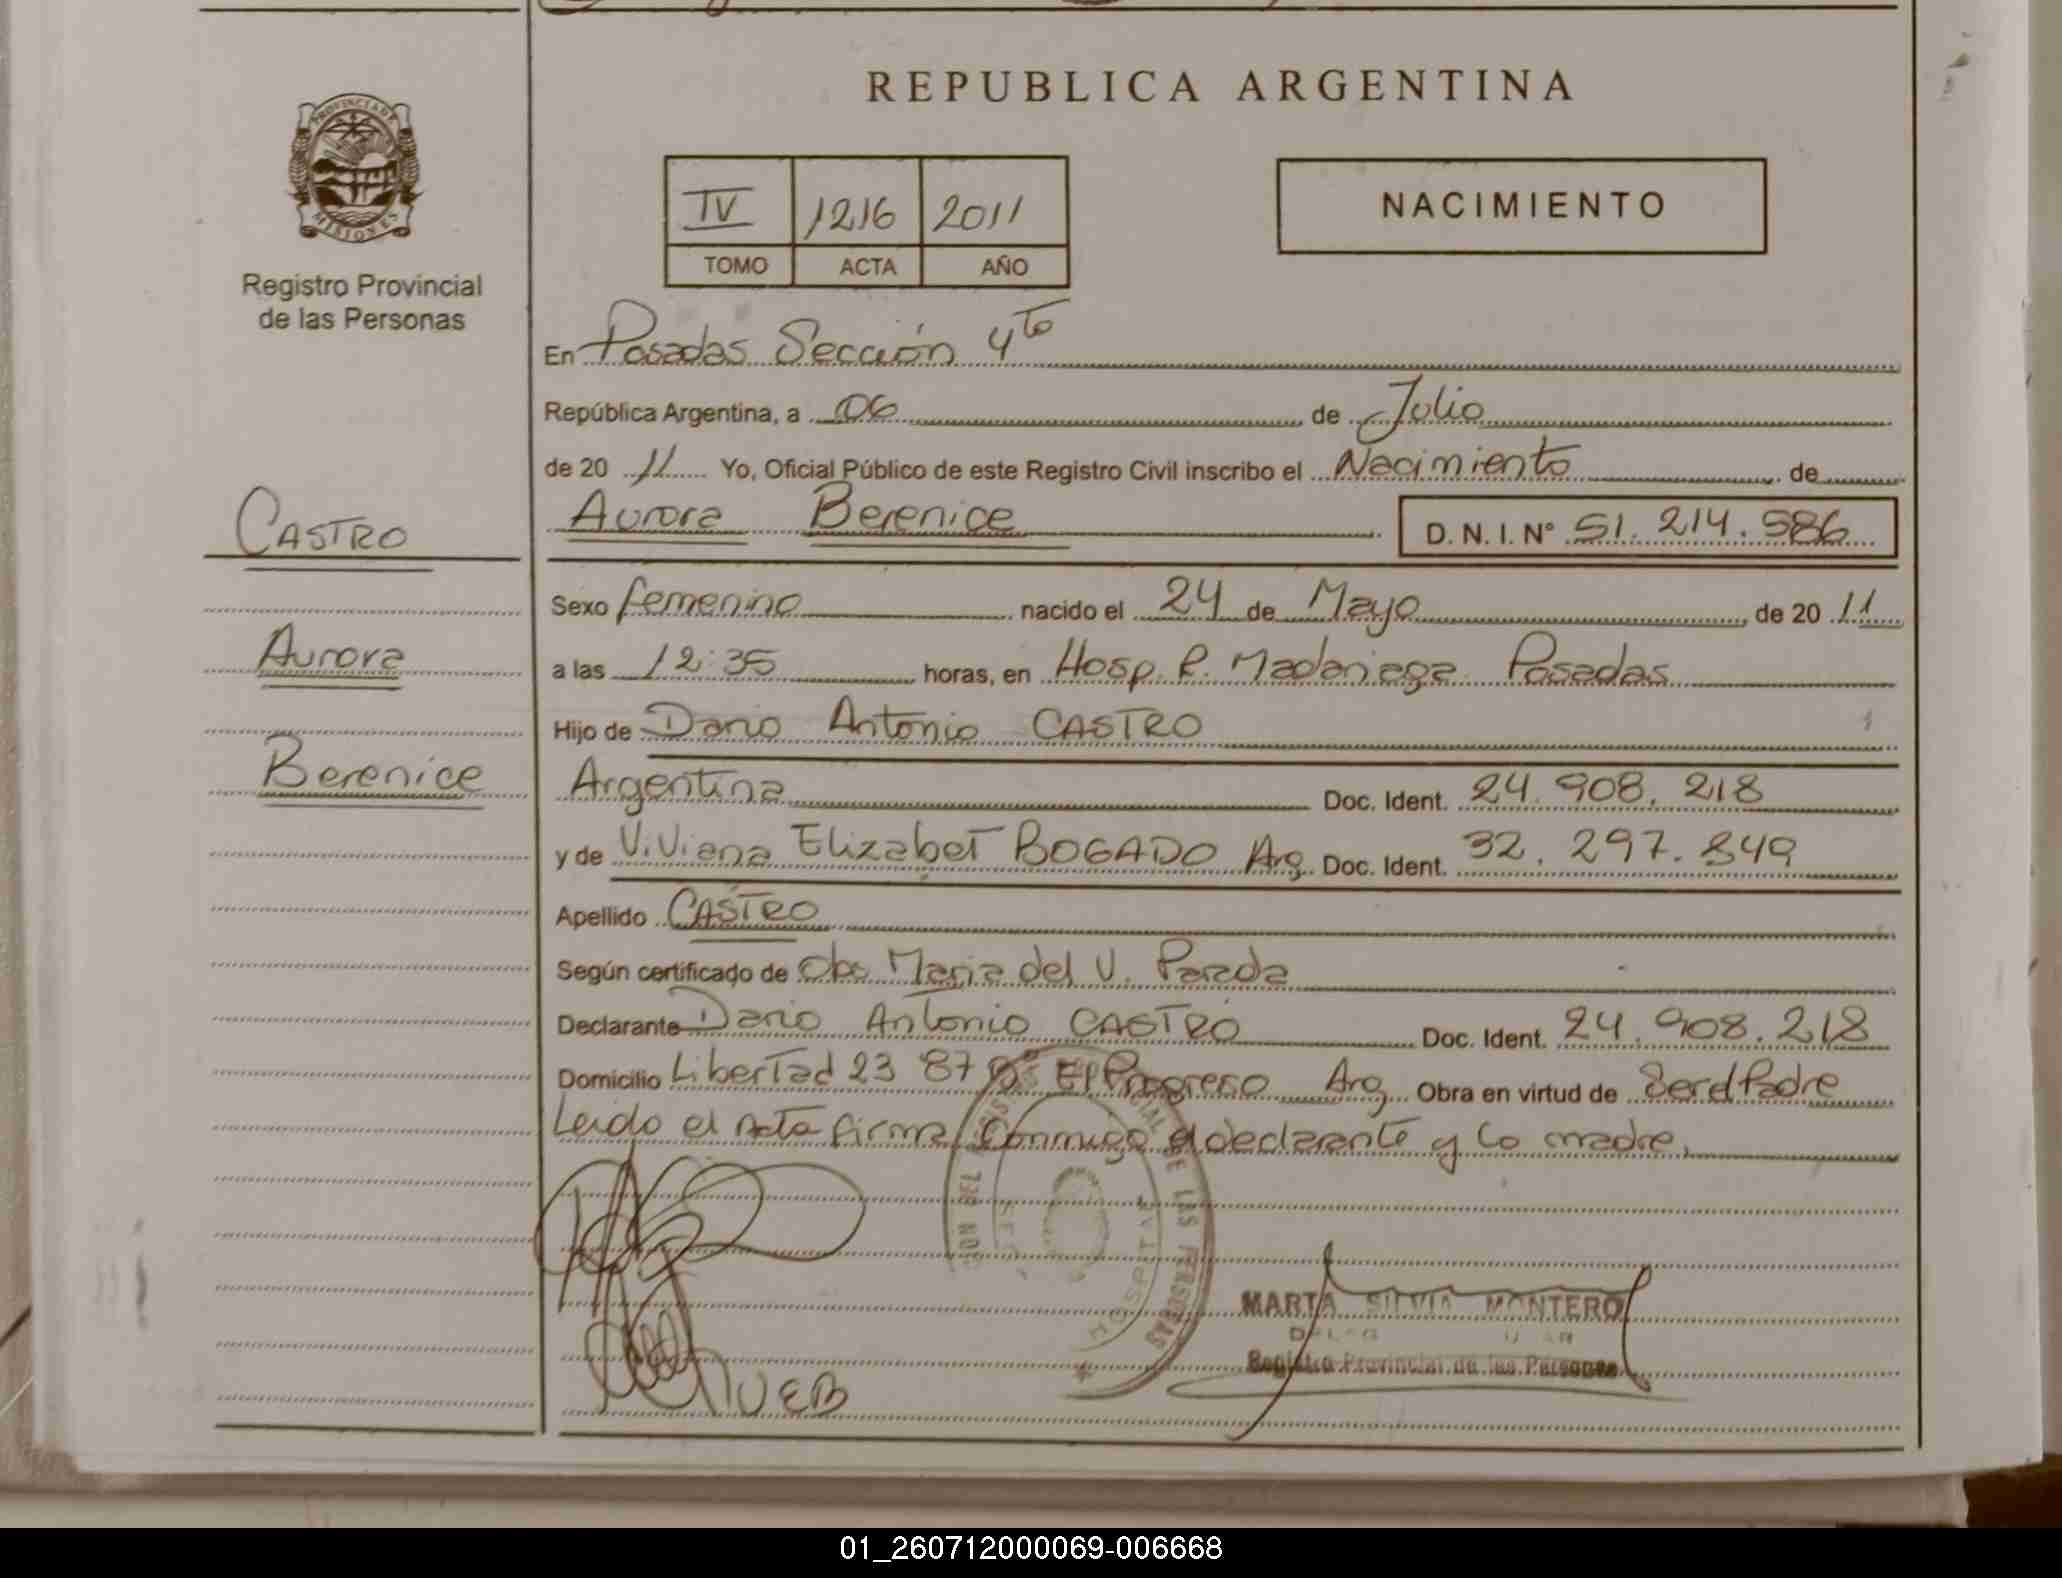 REPUBLICA ARGENTINA
PROVINCIA DE
MISIONES
Registro Provincial
de las Personas
IV 1216 2011
TOMO ACTA AÑO
NACIMIENTO
En Posadas Sección 4to
República Argentina, a 06 de Julio
de 20 11 Yo, Oficial Público de este Registro Civil inscribo el Nacimiento de
CASTRO
Aurora Berenice D. N. I. N° 51.214.586
Sexo femenino nacido el 24 de Mayo de 20 11
Aurora
a las 12:35 horas, en Hosp. R. Madariaga Posadas
Hijo de Dario Antonio CASTRO
Berenice
Argentina Doc. Ident. 24.908.218
y de Viviana Elizabet BOGADO Arg. Doc. Ident. 32.297.849
Apellido CASTRO
Según certificado de Obs. Maria del V. Parada
Declarante Dario Antonio CASTRO Doc. Ident. 24.908.218
Domicilio Libertad 23 87 Bº El Progreso Arg. Obra en virtud de Ser el Padre
Leido el acta firma conmigo el declarante y la madre.
CIAL DE LAS PERSONAS
HOSPITAL
MARTA SILVIA MONTERO
Registro Provincial de las Personas
VEB
01_260712000069-006668